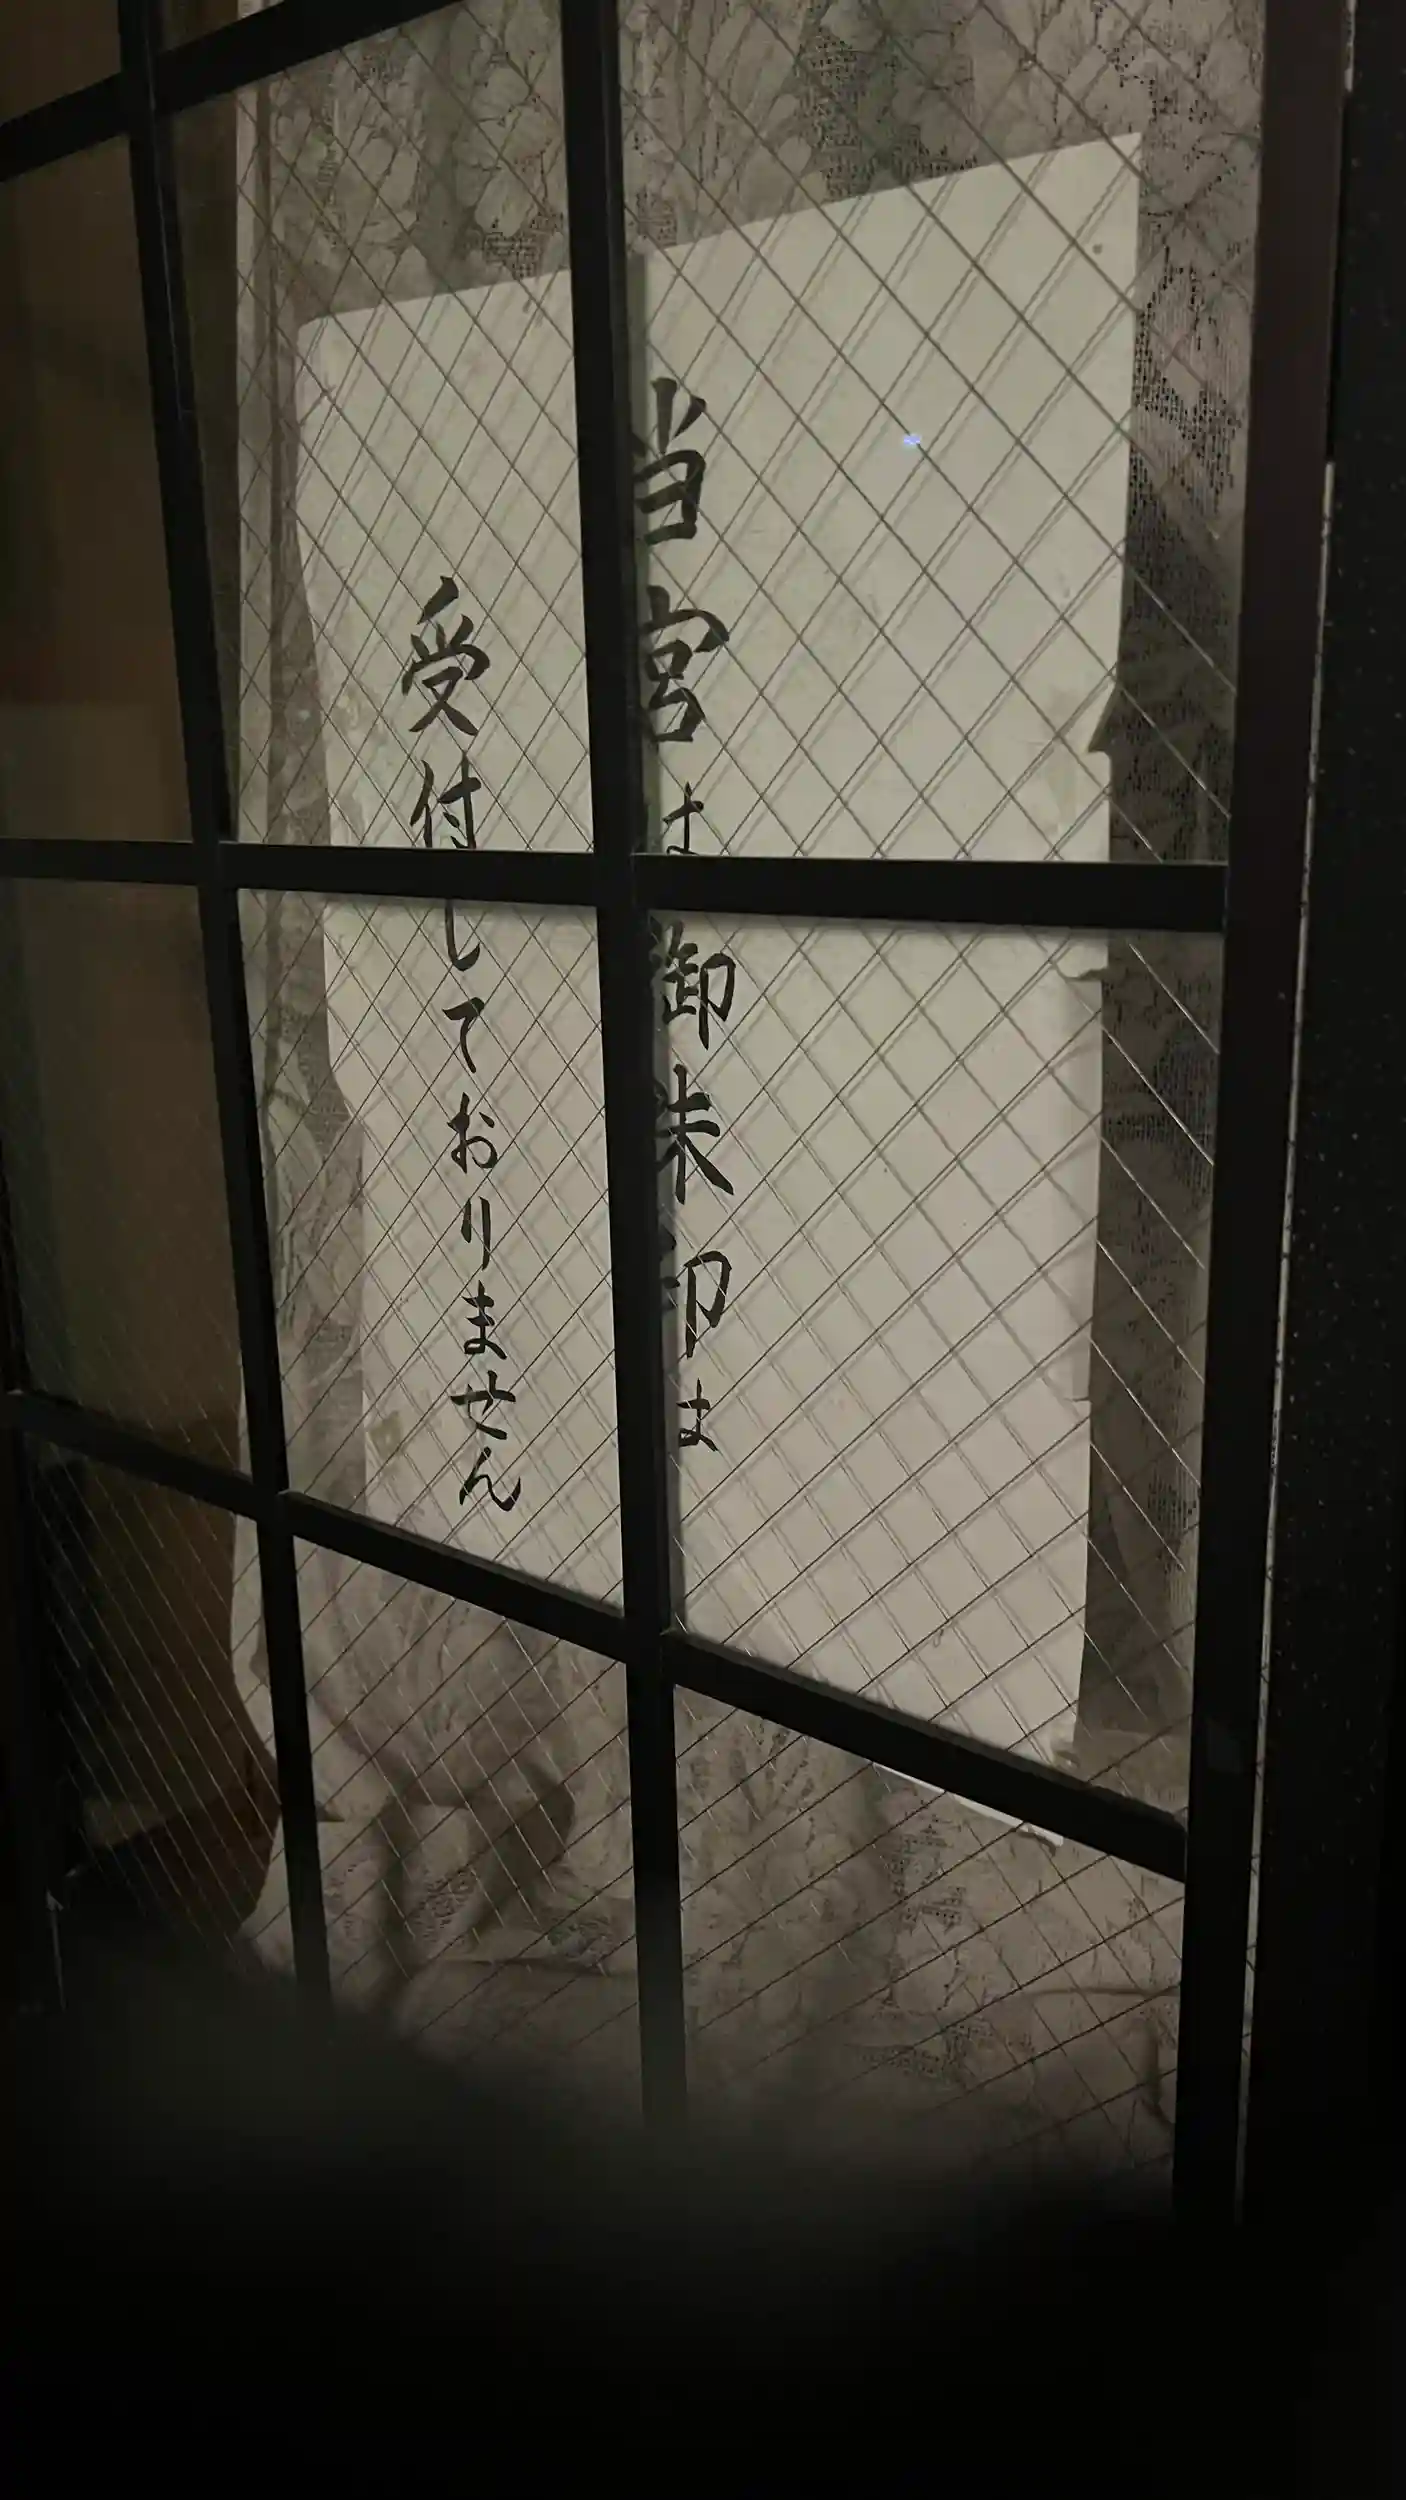 当宮は御朱印は
受付しておりません